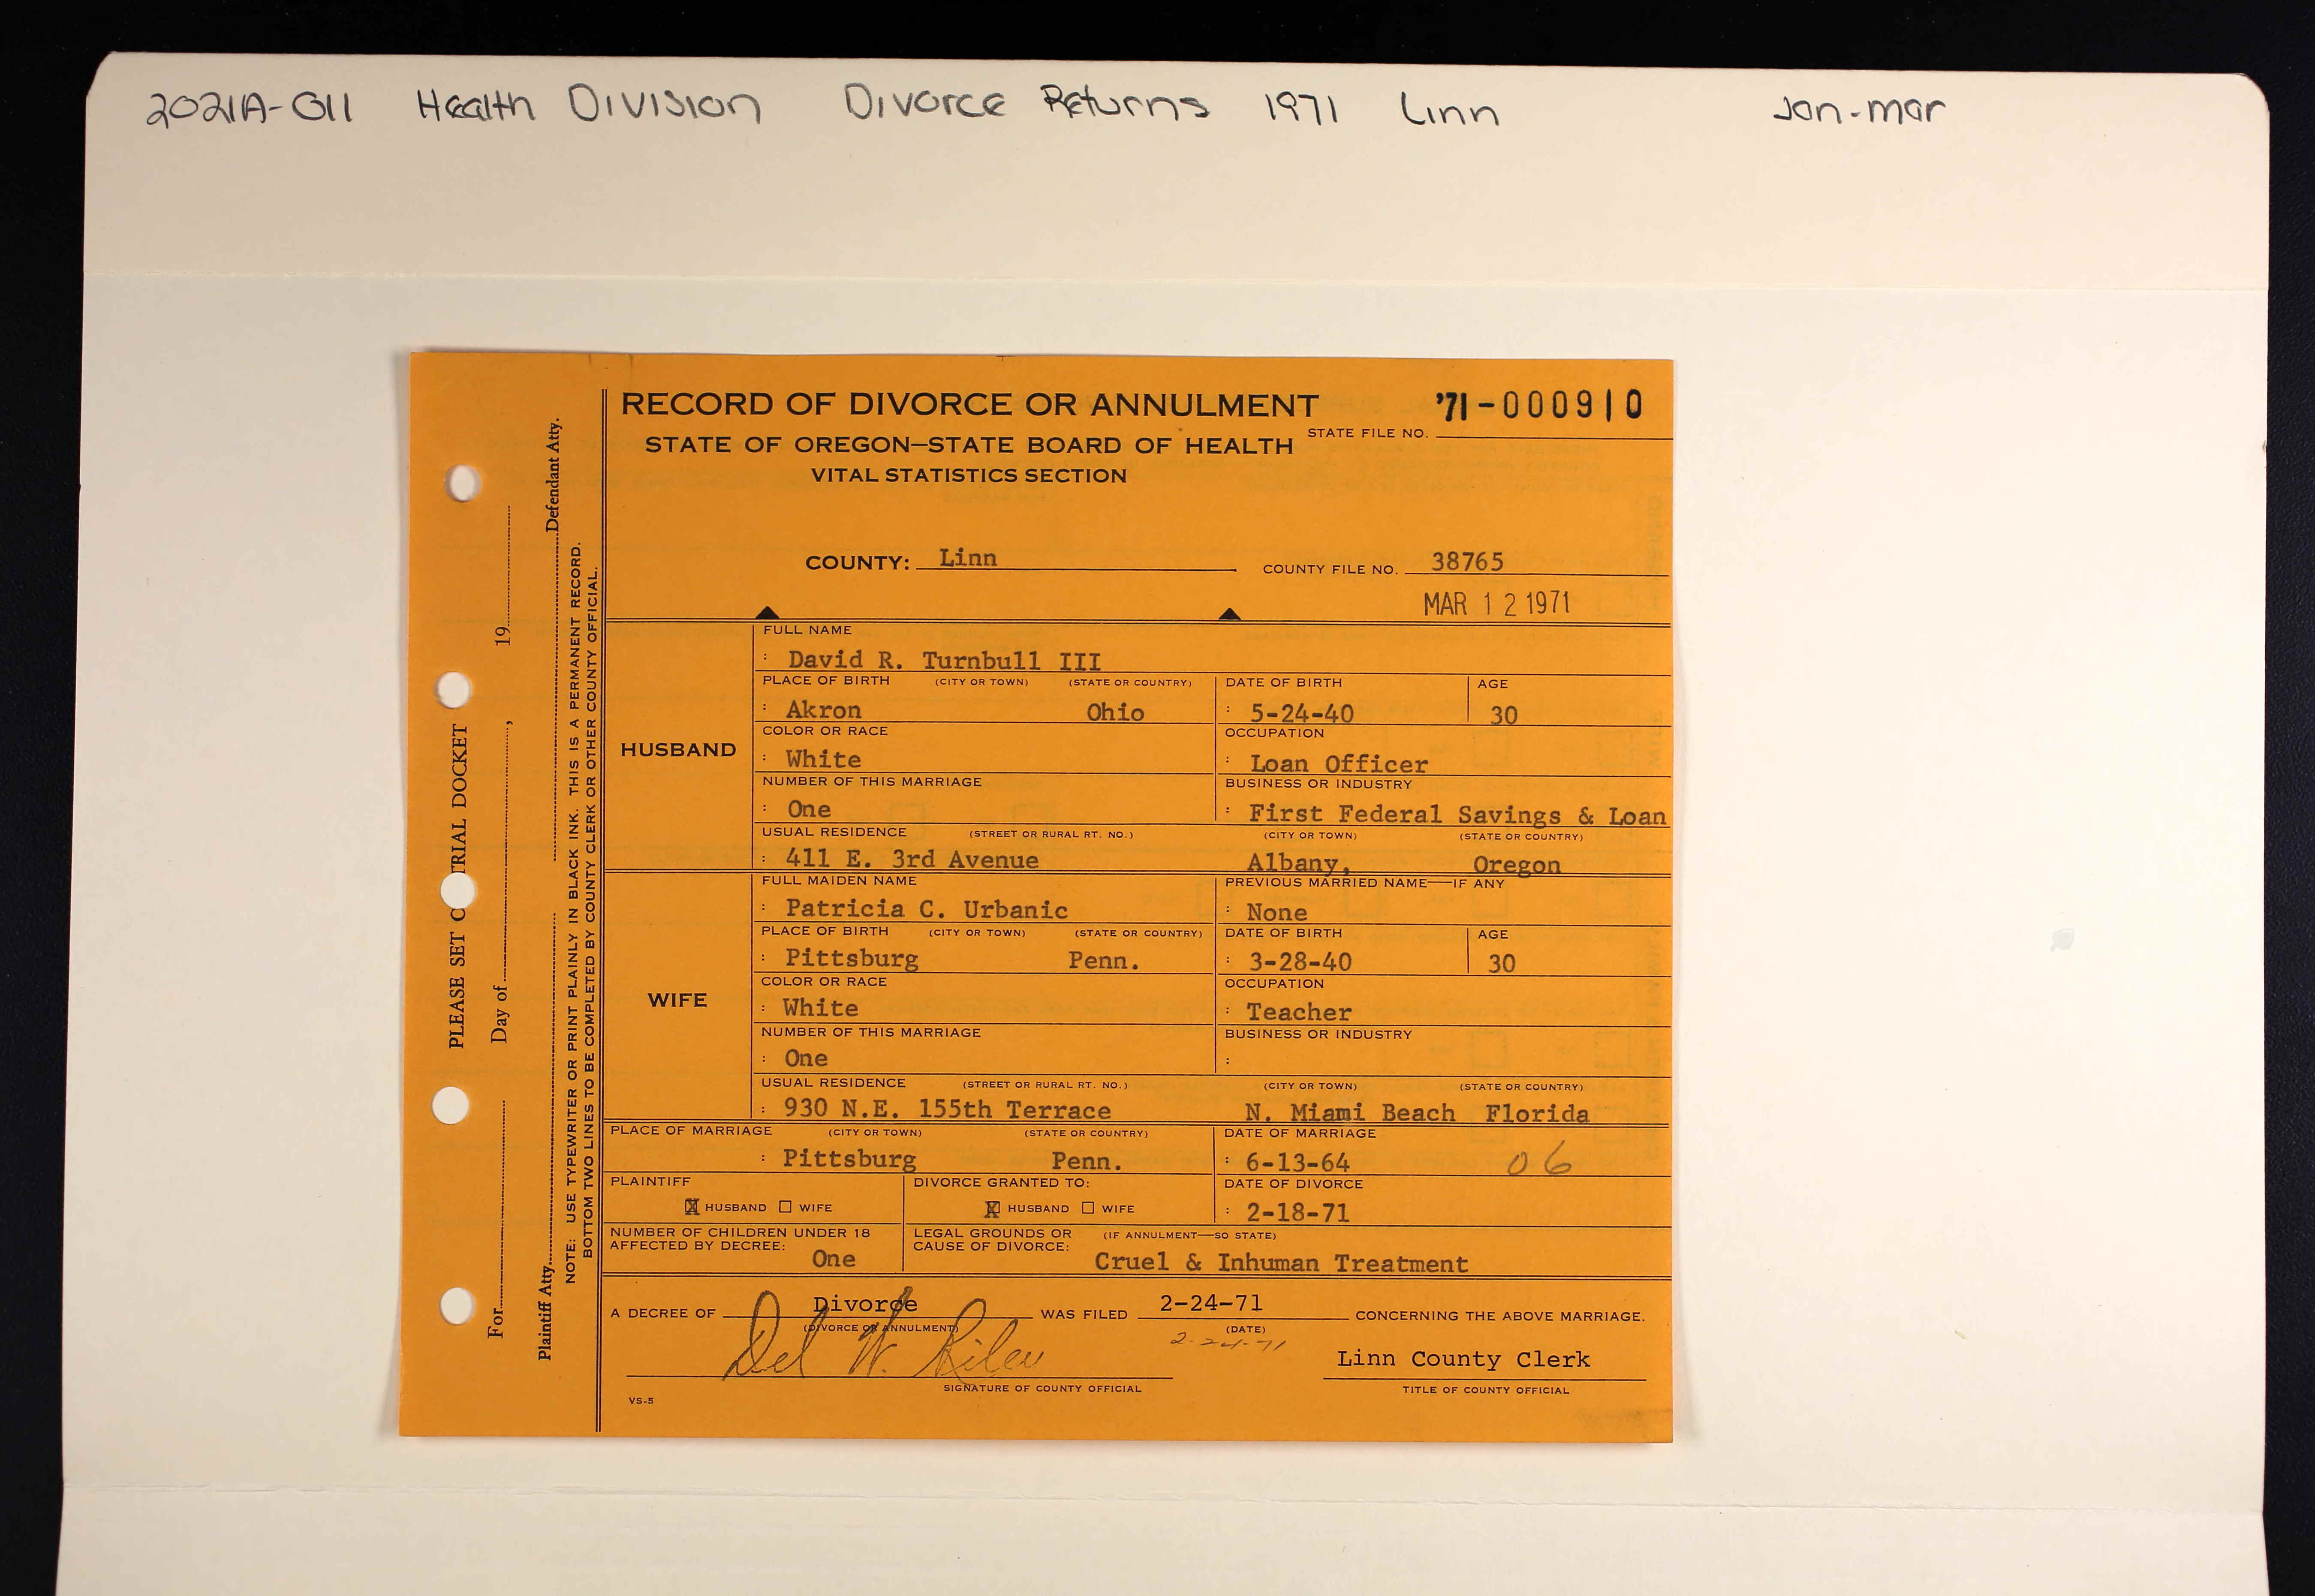 2021A-011 Health Division Divorce Returns 1971 Linn Jan-Mar
RECORD OF DIVORCE OR ANNULMENT '71-000910
STATE OF OREGON—STATE BOARD OF HEALTH STATE FILE NO.
VITAL STATISTICS SECTION
COUNTY: Linn COUNTY FILE NO. 38765
MAR 12 1971
HUSBAND
FULL NAME
: David R. Turnbull III
PLACE OF BIRTH (CITY OR TOWN) (STATE OR COUNTRY) DATE OF BIRTH AGE
: Akron Ohio : 5-24-40 30
COLOR OR RACE OCCUPATION
: White : Loan Officer
NUMBER OF THIS MARRIAGE BUSINESS OR INDUSTRY
: One : First Federal Savings & Loan
USUAL RESIDENCE (STREET OR RURAL RT. NO.) (CITY OR TOWN) (STATE OR COUNTRY)
: 411 E. 3rd Avenue Albany, Oregon
WIFE
FULL MAIDEN NAME PREVIOUS MARRIED NAME—IF ANY
: Patricia C. Urbanic : None
PLACE OF BIRTH (CITY OR TOWN) (STATE OR COUNTRY) DATE OF BIRTH AGE
: Pittsburg Penn. : 3-28-40 30
COLOR OR RACE OCCUPATION
: White : Teacher
NUMBER OF THIS MARRIAGE BUSINESS OR INDUSTRY
: One :
USUAL RESIDENCE (STREET OR RURAL RT. NO.) (CITY OR TOWN) (STATE OR COUNTRY)
: 930 N.E. 155th Terrace N. Miami Beach Florida
PLACE OF MARRIAGE (CITY OR TOWN) (STATE OR COUNTRY) DATE OF MARRIAGE
: Pittsburg Penn. : 6-13-64 06
PLAINTIFF DIVORCE GRANTED TO: DATE OF DIVORCE
X HUSBAND WIFE X HUSBAND WIFE : 2-18-71
NUMBER OF CHILDREN UNDER 18 LEGAL GROUNDS OR (IF ANNULMENT—SO STATE)
AFFECTED BY DECREE: One CAUSE OF DIVORCE: Cruel & Inhuman Treatment
A DECREE OF Divorce WAS FILED 2-24-71 CONCERNING THE ABOVE MARRIAGE.
(DIVORCE OR ANNULMENT) (DATE)
2-24-71
Del W. Riley Linn County Clerk
SIGNATURE OF COUNTY OFFICIAL TITLE OF COUNTY OFFICIAL
VS-5
PLEASE SET C TRIAL DOCKET
For Day of , 19
Plaintiff Atty. Defendant Atty.
NOTE: USE TYPEWRITER OR PRINT PLAINLY IN BLACK INK. THIS IS A PERMANENT RECORD.
BOTTOM TWO LINES TO BE COMPLETED BY COUNTY CLERK OR OTHER COUNTY OFFICIAL.